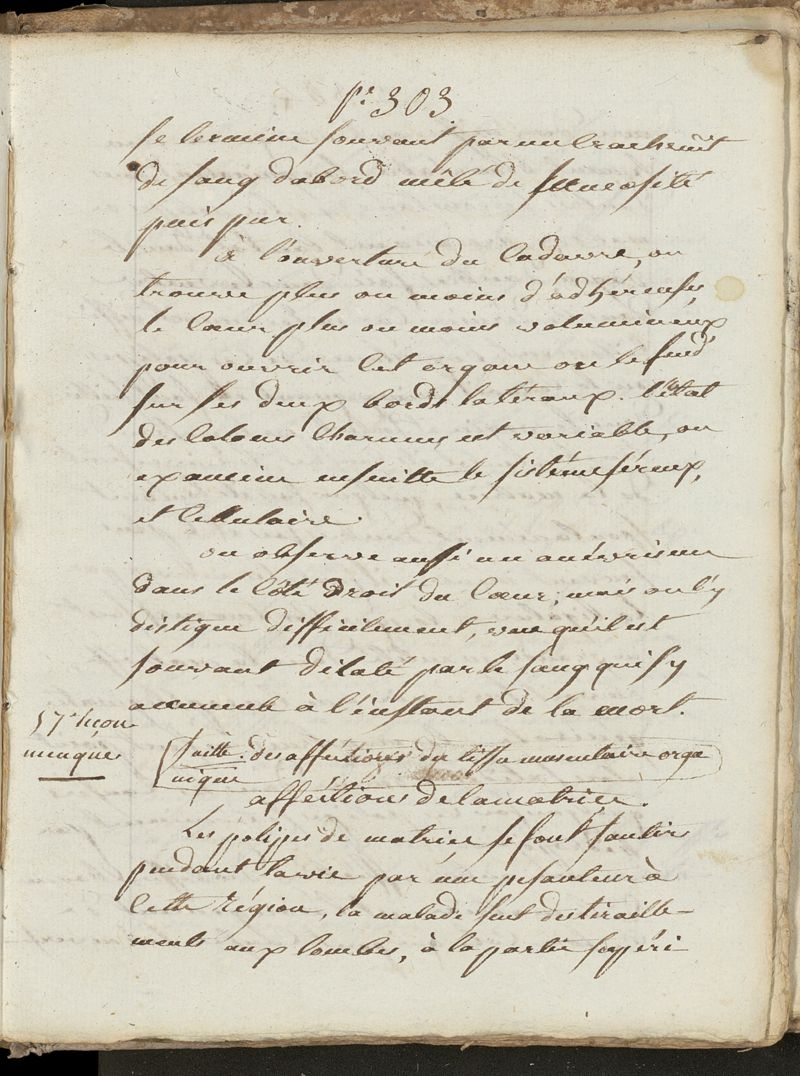 pe 303
se termine souvant par un crachemt
de sang dabord mêlé de sumcosité
puis pur.
à l'ouverture du Cadavre, on
trouve plus ou moins d'adhérenses,
le Cœur plus ou moins volumineux
pour ouvrir Cet organe on le fend
sur ses deux bords lateraux. l'état
des Colones Charnues est variable, on
examine ensuitte le sistême séreux,
et Cellulaire.
on observe aussi un anévrisme
dans le Côté droit du Cœur, mais on l'y
distigue difficilement, vue qu'il est
souvant dilaté par le sang qui s'y
accumule à l'instant de la mort.
57e lecon
manquée
suitte. des afféctions du tissu musculaire orga
nique
afféctions de la matrice.
Les polipes de matrice se font santir
pendant la vie par une pesanteur à
Cette région, la malade sent des tiraille-
ments aux lombes, à la partie supéri